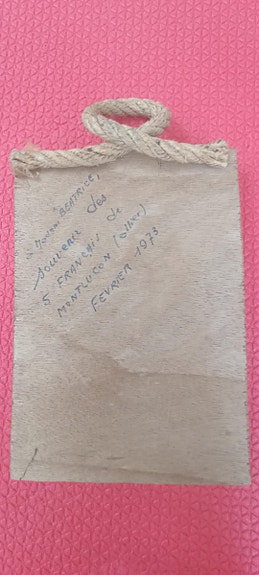 "BEATRICE,
Souvenir des
5 FRANÇAIS de
MONTLUÇON (Allier)
FEVRIER 1973